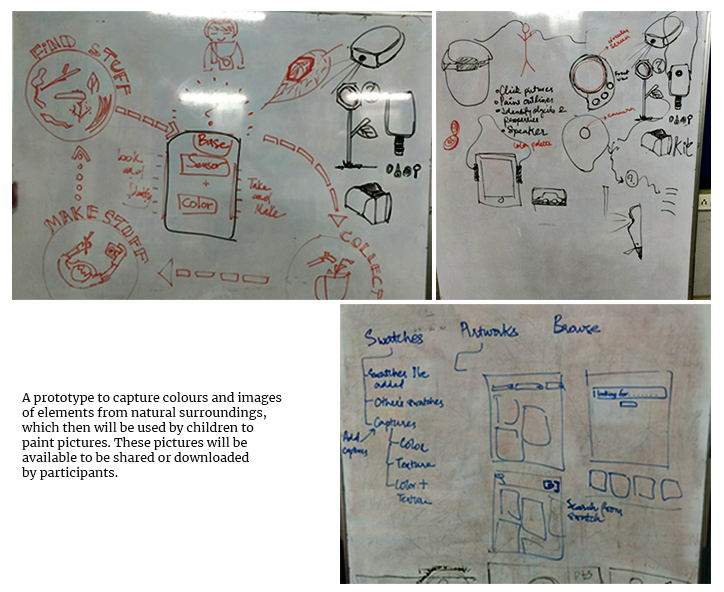 FIND STUFF
Base
Sensor
+
Color
look
and
Take
and
Make
MAKE STUFF
COLLECT
Click pictures
Paint outlines
Identify objects &
properties
Speaker
Color palette
screen
Front
view
camera
Kit
Swatches
Swatches I've
added
Other's swatches
Captures
Add
captures
Color
Texture
Color +
Texture
Artworks
Browse
I looking for........
Search from
swatch
A prototype to capture colours and images
of elements from natural surroundings,
which then will be used by children to
paint pictures. These pictures will be
available to be shared or downloaded
by participants.